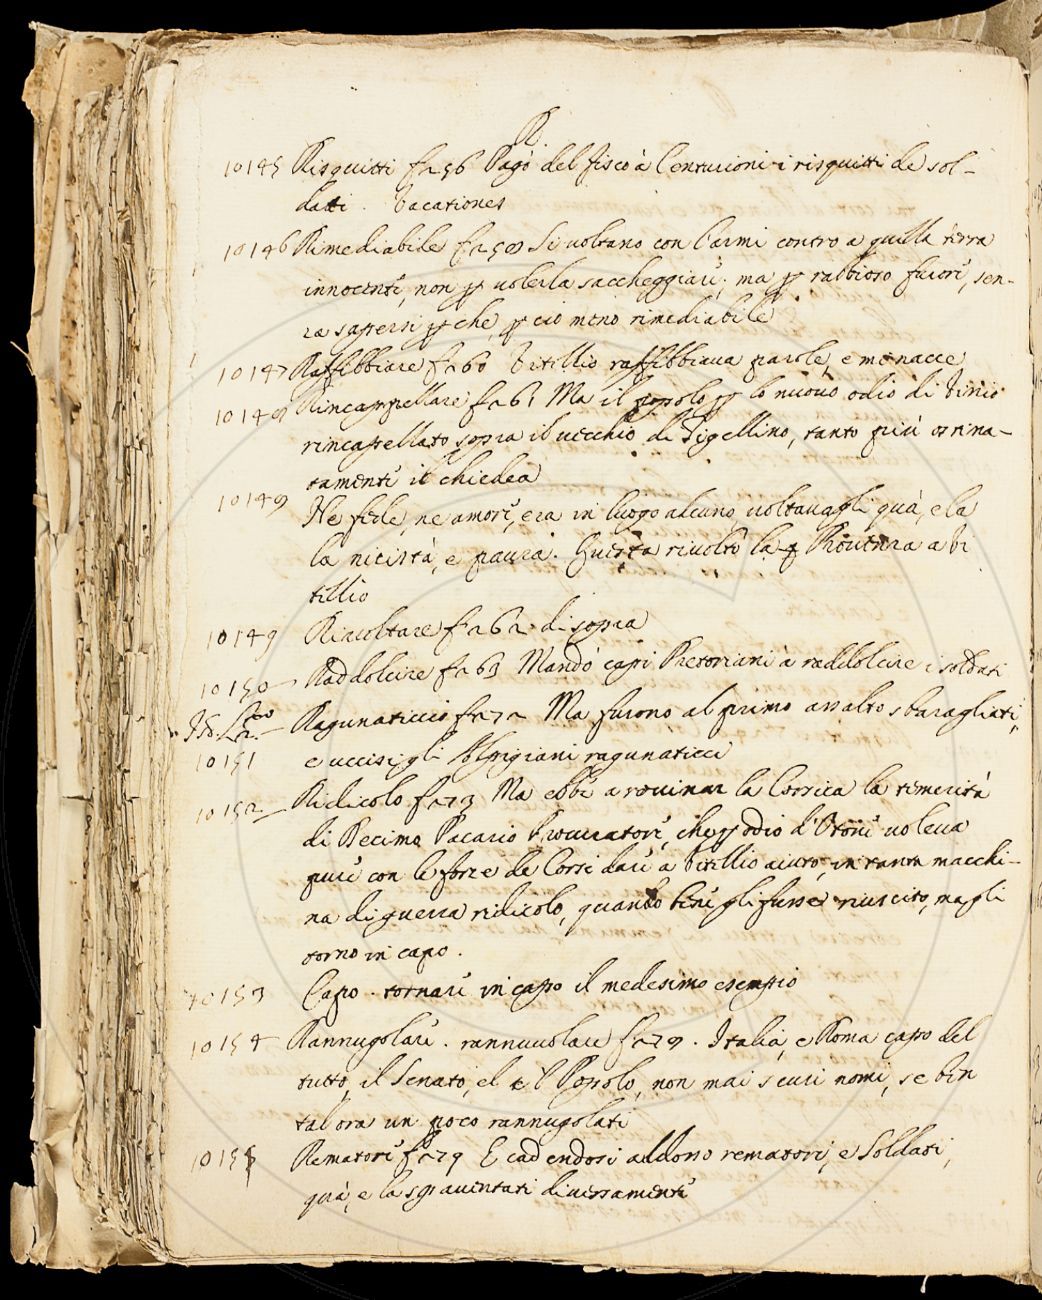 R
10145 Risquitti f 256 Pagò del fisco à Centurioni i risquitti de sol-
dati . Vacationes
10146 Rimediabile f 258 Si voltano con l'armi contro a quella terra
innocente, non p volerla saccheggiare; ma p rabbioso furore, sen-
za sapersi p che, p ciò meno rimediabile
10147 Raffibbiare f 260 Vitellio raffibbiava parole, e minacce
10148 Rincappellare f 261 Ma il popolo p lo nuovo odio di Vinio
rincappellato sopra il vecchio di Tigellino, tanto più ostina-
tamente il chiedea
10149 Ne fede, ne amore, era in luogo alcuno, voltavagli quà, e la
la necistà, e paura. Questa rivoltò la Provenza a Vi
tellio
10149 Rivoltare f 262 di sopra
10150 Raddolcire f 263 Mandò capi Pretoriani à raddolcire i soldati
Ragunaticcio f 272 Ma furono al primo assalto sbaragliati,
10151 e uccisi gli Alpigiani ragunaticci
10152 Ridicolo f 273 Ma ebbe a rovinar la Corsica la temerità
di Decimo Pacario Procuratore, che p odio d'Otone voleva
pure con le forze de Corsi dare à Vitellio aiuto, in tanta macchi-
na di guerra ridicolo, quando bene gli fusse riuscito, ma gli
torno in capo .
10153 Capo . tornare in capo il medesimo esempio
10154 Rannugolare . rannuvolare f 279 . Italia, e Roma capo del
tutto, il Senato, el Popolo, non mai scuri nomi, se ben
tal'ora un poco rannugolati
10155 Rematore f 279 E cadendosi addosso rematori, e Soldati,
quà, e la spaventati diversamente